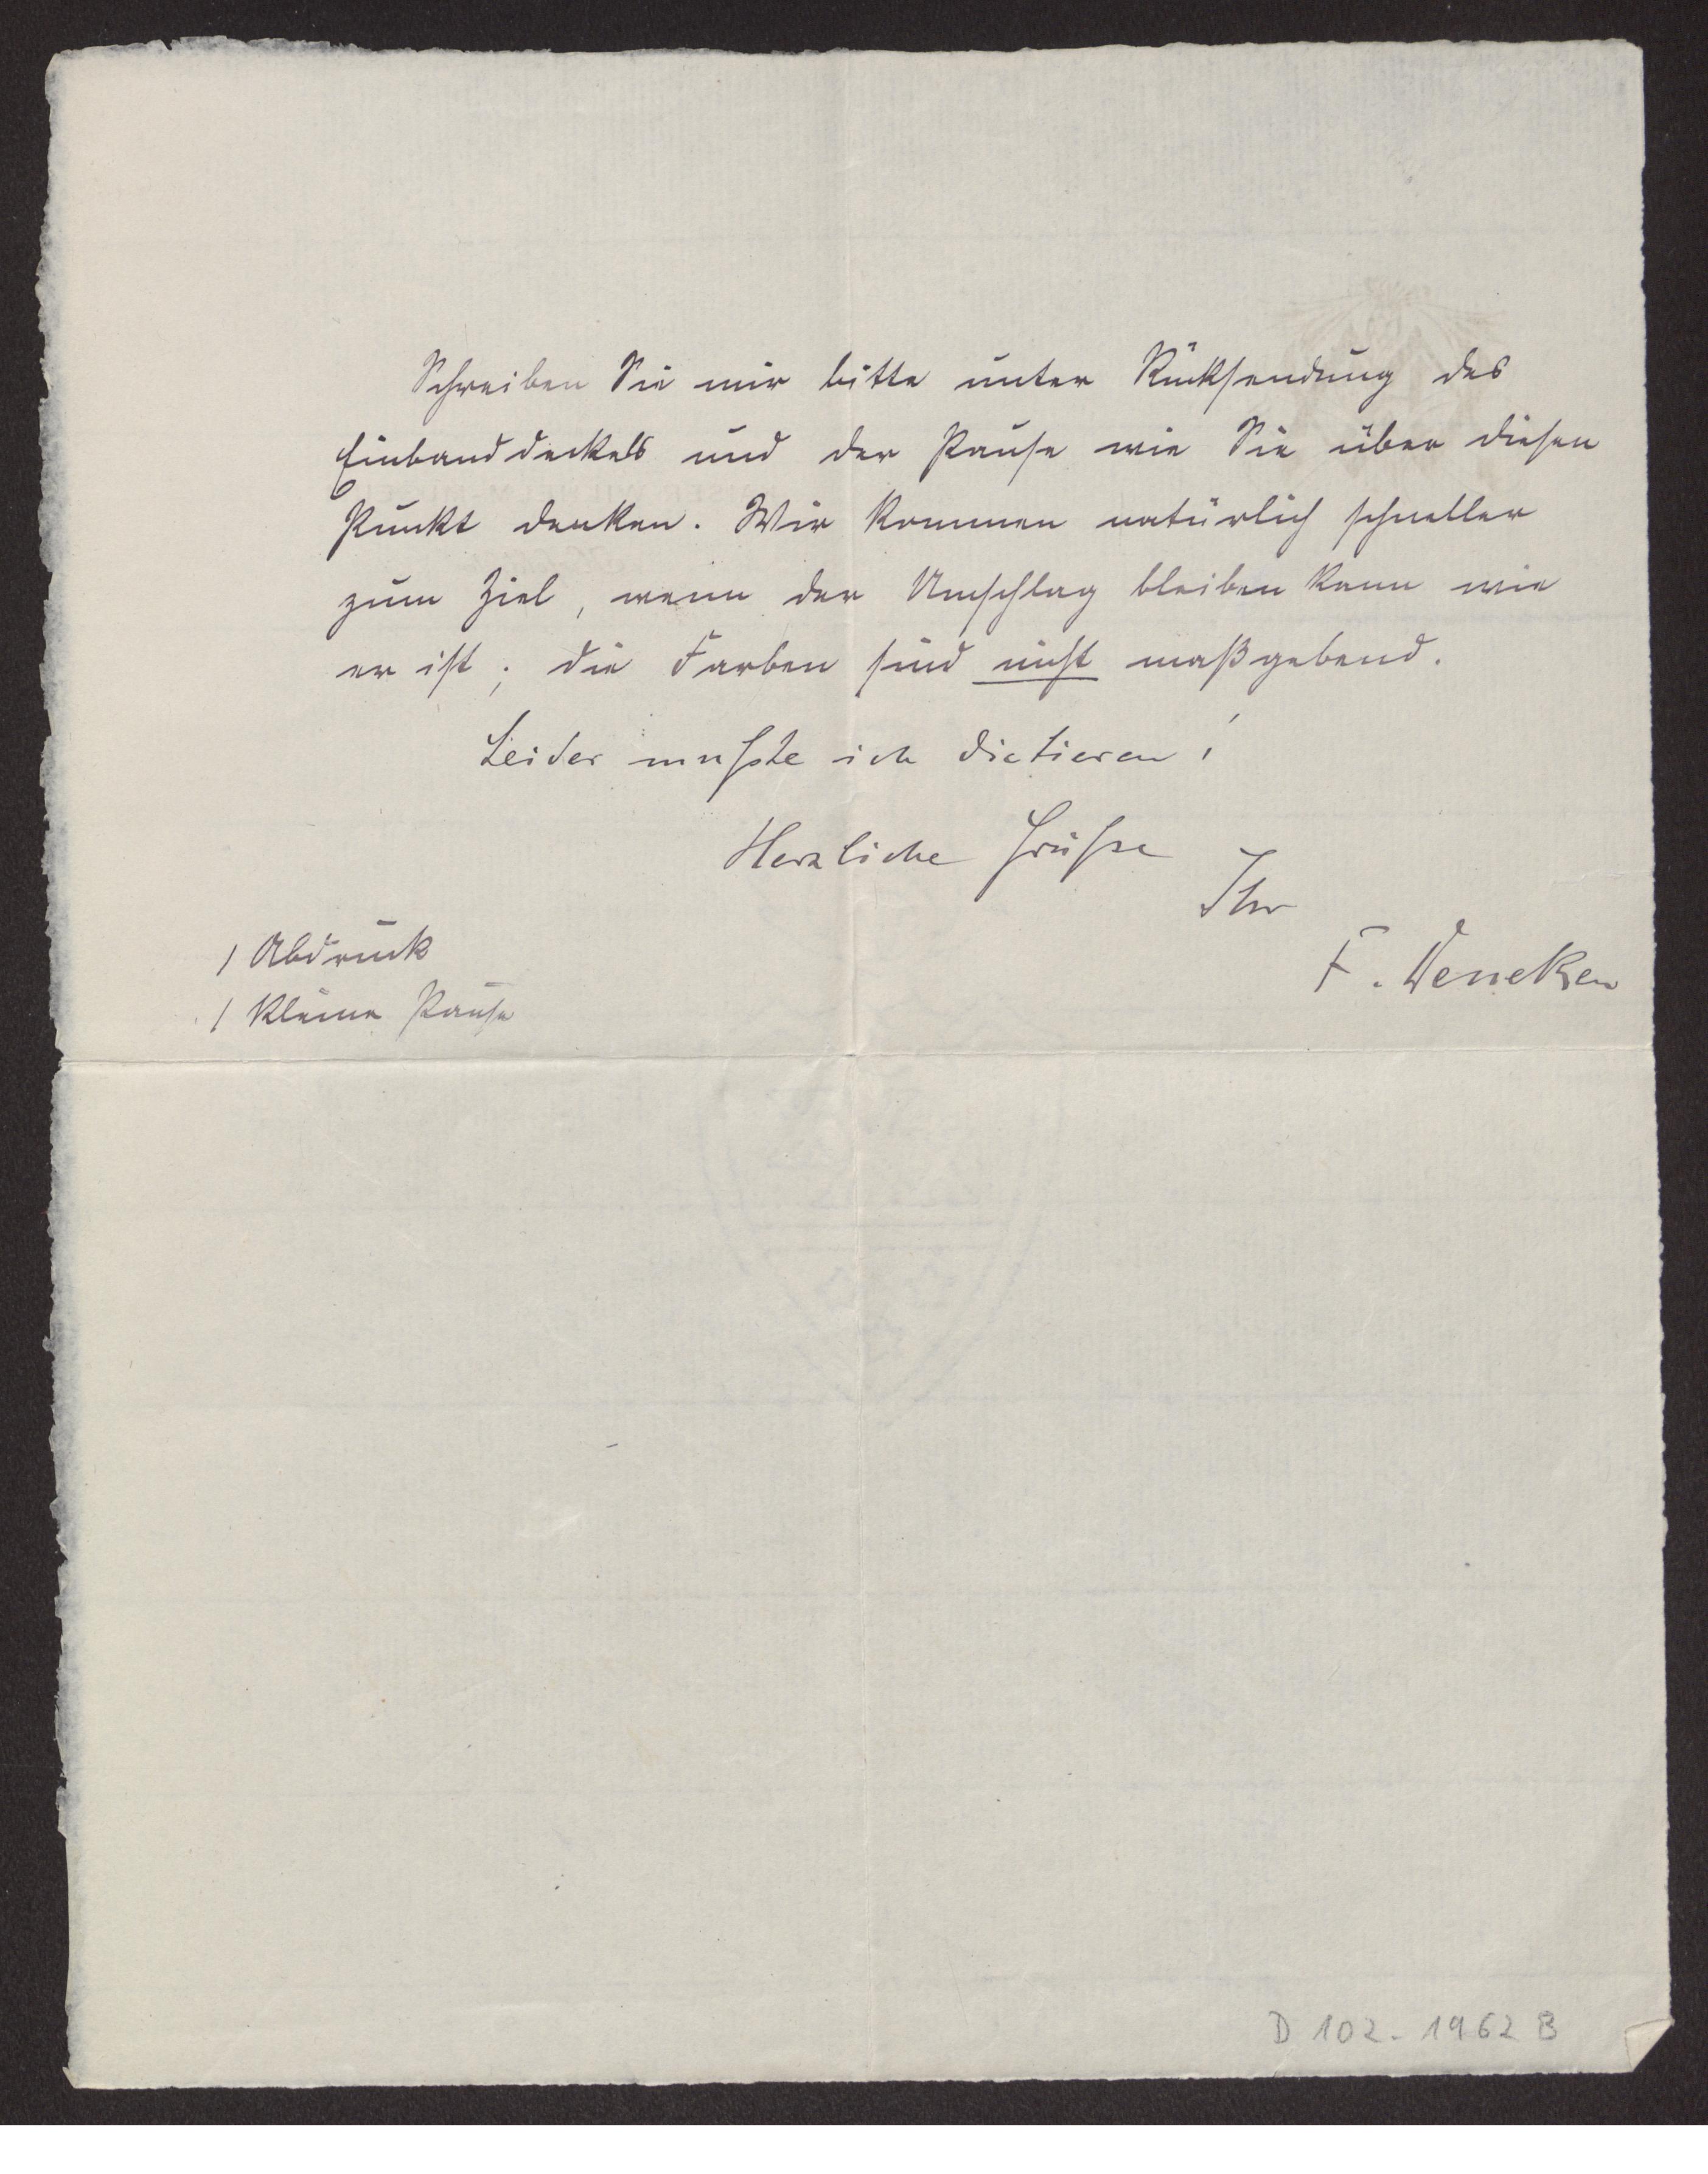 Schreiben Sie mir bitte unter Rücksendung des
Einbanddeckels und der Pause wie Sie über diesen
Punkt denken. Wir kommen natürlich schneller
zum Ziel, wenn der Umschlag bleiben kann wie
er ist; die Farben sind nicht maßgebend.
Leider mußte ich dictieren!
Herzliche Grüße
Ihr
F. Deneken
1 Abdruck
1 kleine Pause
D 102-1962 B